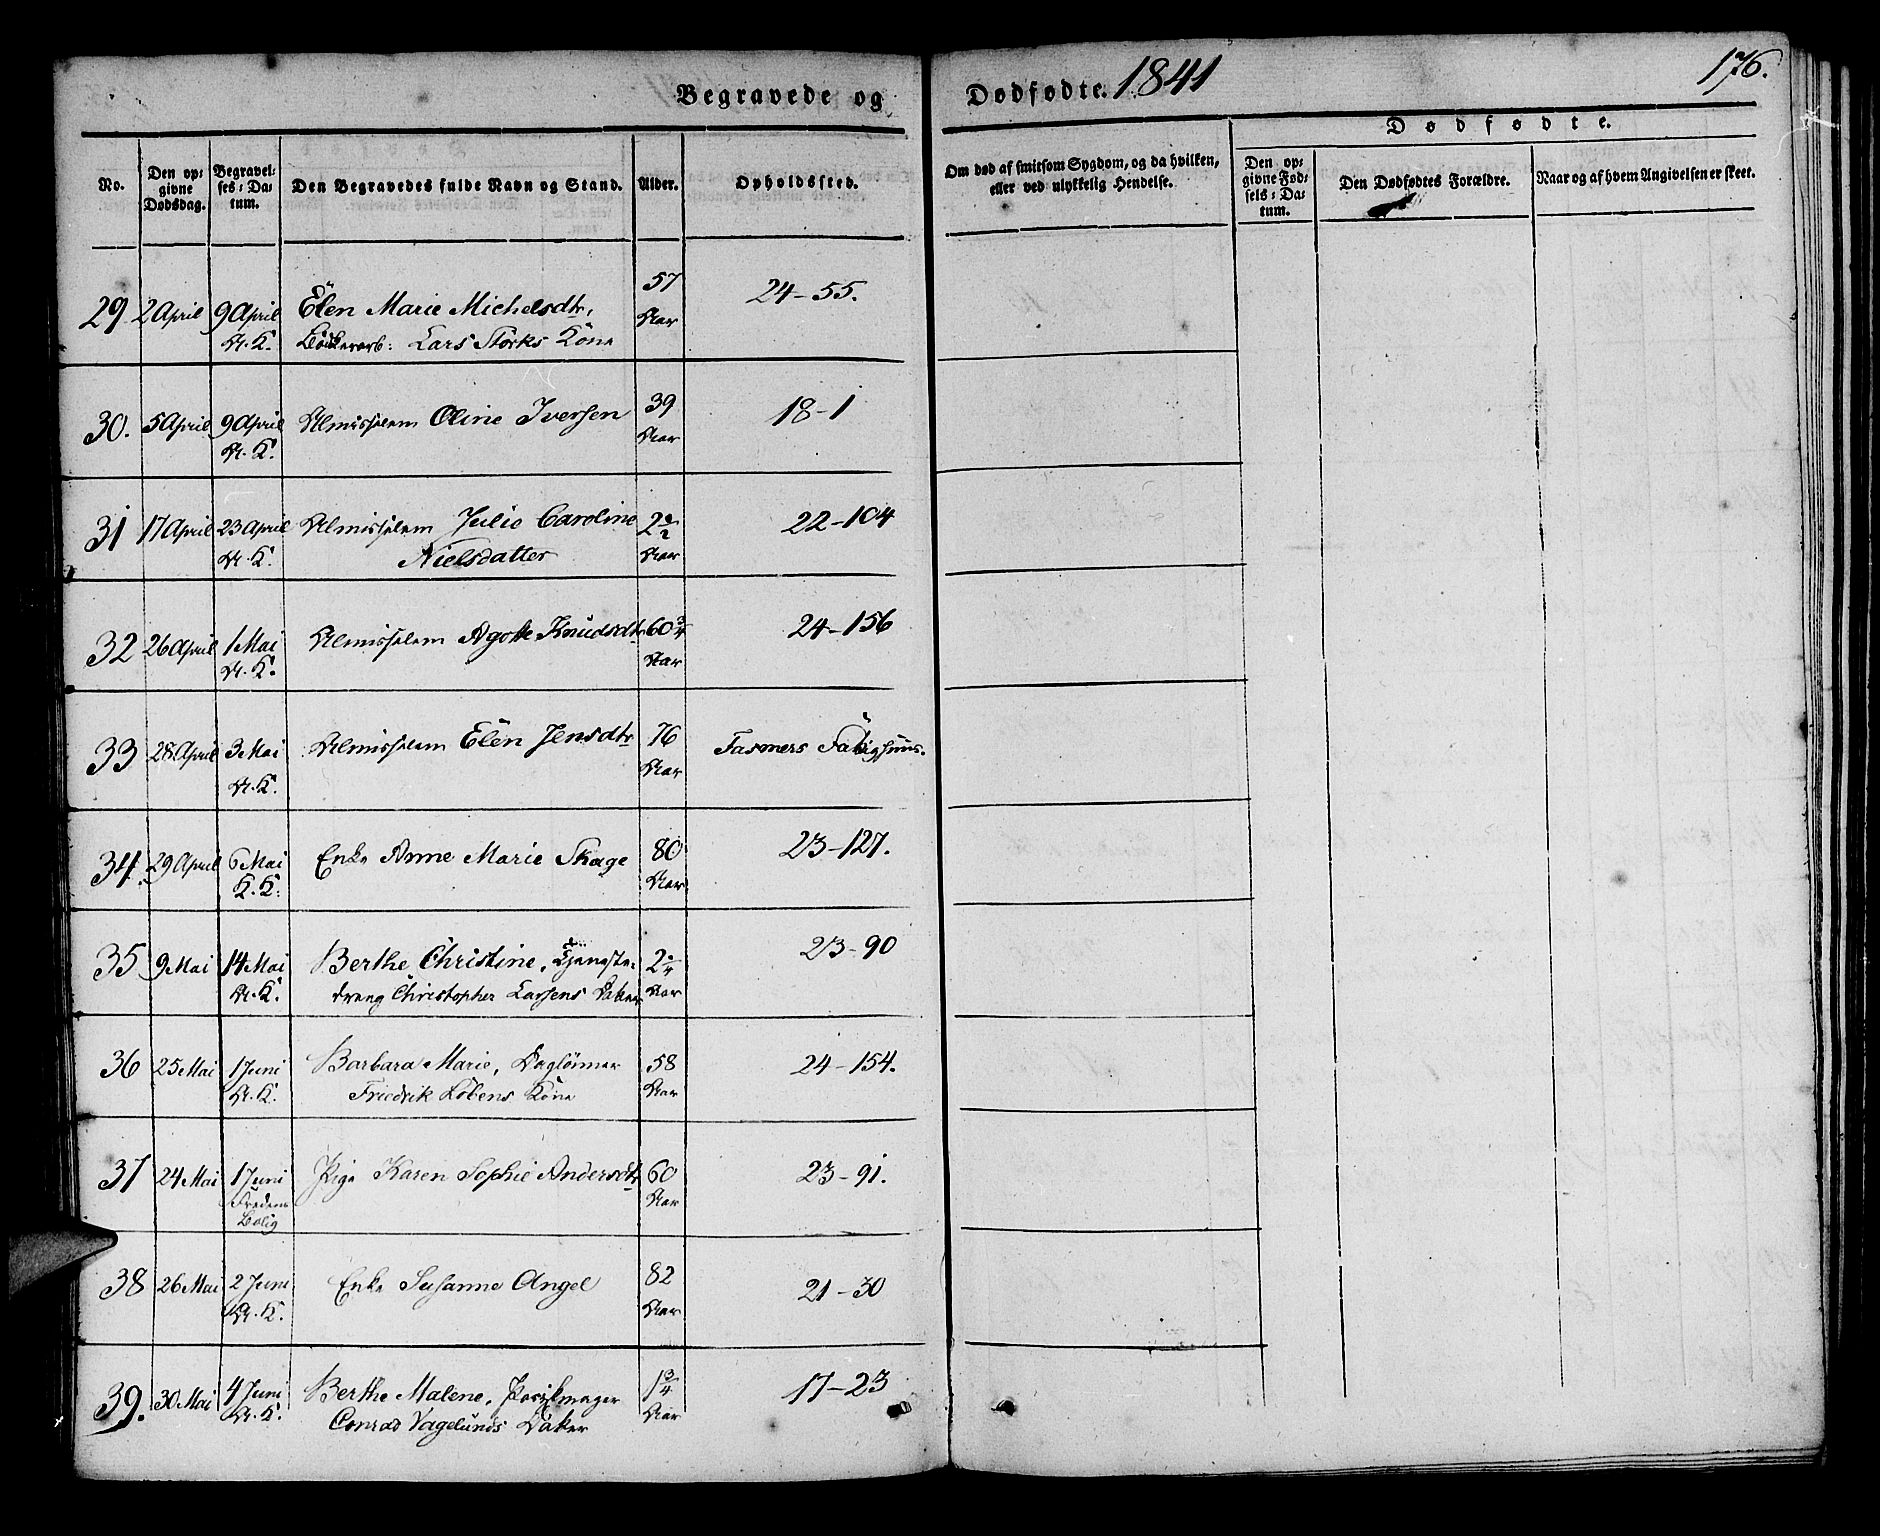 Begravede og Dødfødte. 1841
176.
No.
Den op-
givne
Dødsdag.
Begravel-
ses-Da-
tum.
Den Begravedes fulde Navn og Stand.
Alder.
Opholdssted.
Om død af smitsom Sygdom, og da hvilken,
eller ved ulykkelig Hendelse.
Dødfødte.
Den op-
givne Fød-
sels-Da-
tum.
Den Dødfødtes Forældre.
Naar og af hvem Angivelsen er skeet.
29 2 April 9 April Elen Marie Michelsdtr, 57 24-55.
A. K. Lars Storks Kone Aar
30. 5 April 9 April Almisselem Oline Iversen 39 18-1
A. K. Aar
31 17 April 23 April Almisselem Julie Caroline 2 22-104
A. K. Nielsdatter Aar
32 26 April 1 Mai Almisselem Agothe Knudsdtr 60 3/4 24-156
A. K. Aar
33 28 April 3 Mai Almisselem Elen Jensdtr 76
A. K. Aar
34. 29 April 6 Mai Enke Anne Marie Skage 80 23-127.
K. K. Aar
35 9 Mai 14 Mai Berthe Christine, Tjeneste- 2 23-90
A. K. dreng Christopher Larsens Datter Aar
36 25 Mai 1 Juni Barbara Marie, Daglønner 58 24-154.
A. K. Friedrik Lobens Kone Aar
37 24 Mai 1 Juni Pige Karen Sophie Andersdtr 60 23-91.
Fredens Aar
Bolig
38 26 Mai 2 Juni Enke Susanne Angel 82 21-30
A. K. Aar
39. 30 Mai 4 Juni Berthe Malene, 1 3/4 17-23
A. K. Conrad Vagelunds Datter Aar